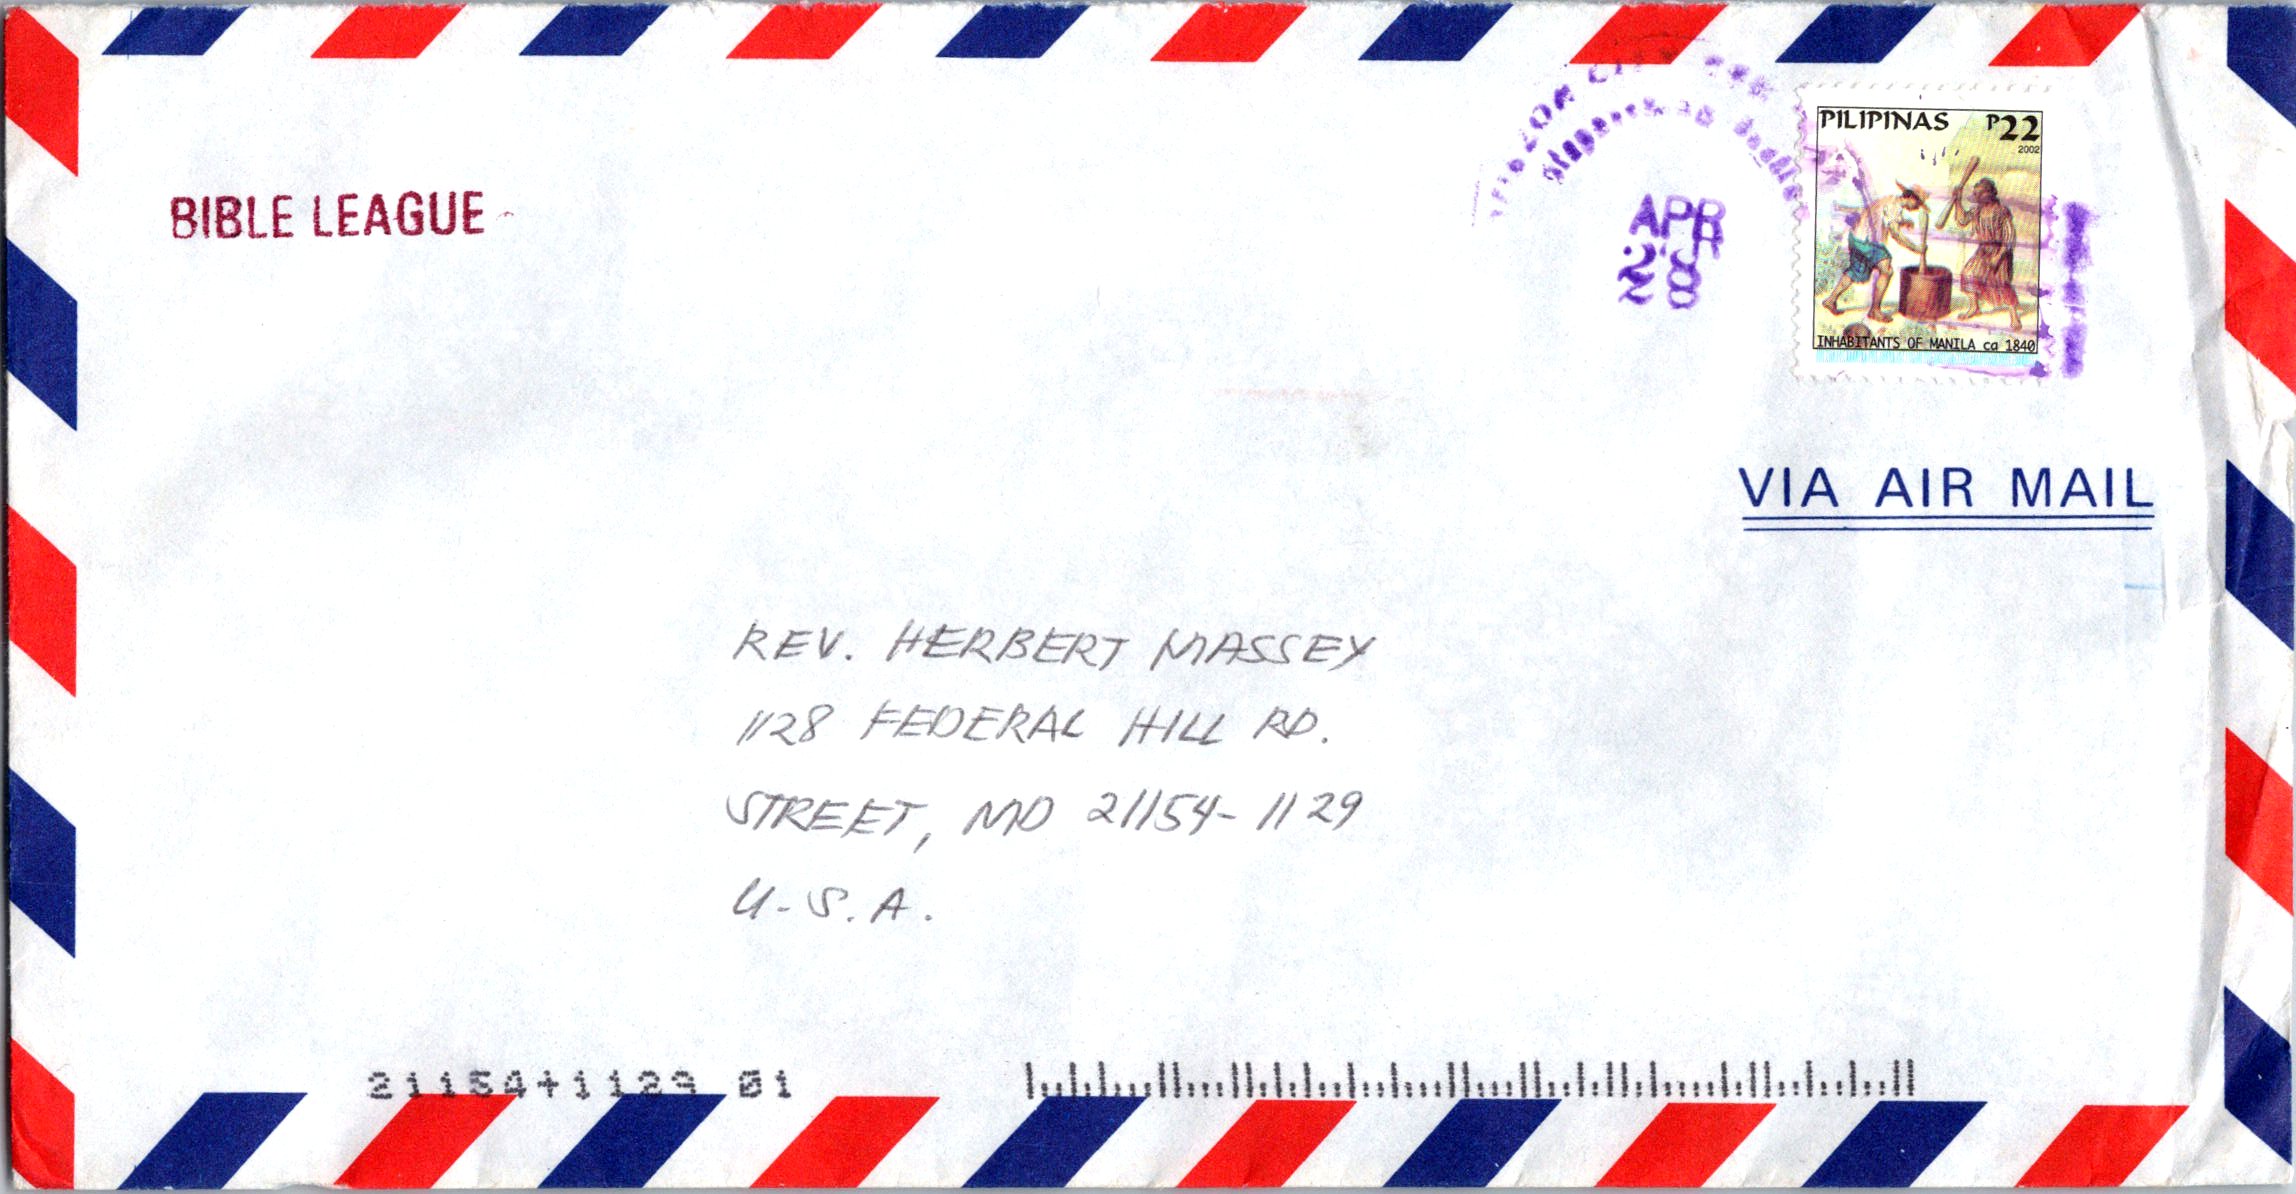 PILIPINAS P22
2002
BIBLE LEAGUE
APR
28
INHABITANTS OF MANILA ca 1840
VIA AIR MAIL
REV. HERBERT MASSEY
1128 FEDERAL HILL RD.
STREET, MD 21154-1129
U.S.A.
21154+1129 01